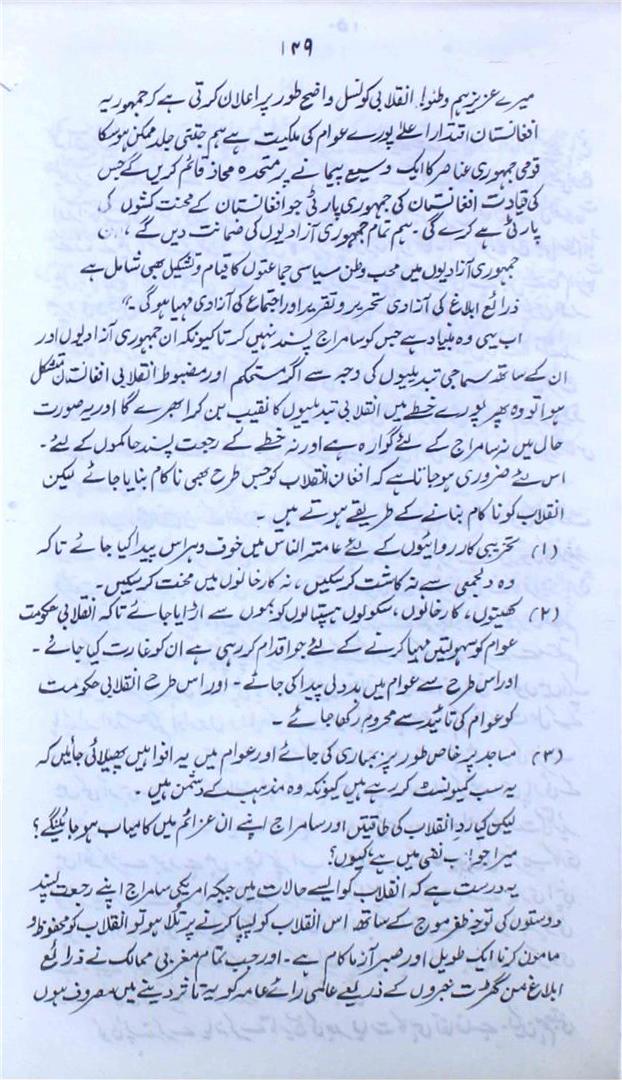 ۱۴۹
میرے عزیز ہم وطنو! انقلابی کونسل واضح طور پر اعلان کرتی ہے کہ جمہوریہ
افغانستان اقتدار اعلےٰ پورے عوام کی ملکیت ہے ہم جتنی جلد ممکن ہو سکا
قومی جمہوری عناصر کا ایک وسیع پیمانے پر متحدہ محاذ قائم کریں گے جس
کی قیادت افغانستان کی جمہوری پارٹی جو افغانستان کے محنت کشوں کی
پارٹی ہے کرے گی۔ ہم تمام جمہوری آزادیوں کی ضمانت دیں گے، ان
جمہوری آزادیوں میں محب وطن سیاسی جماعتوں کا قیام و تشکیل بھی شامل ہے
ذرائع ابلاغ کی آزادی تحریر و تقریر اور اجتماع کی آزادی مہیا ہو گی۔"
اب یہی وہ بنیاد ہے جس کو سامراج پسند نہیں کرتا کیونکہ ان جمہوری آزادیوں اور
ان کے ساتھ سماجی تبدیلیوں کی وجہ سے اگر مستحکم اور مضبوط انقلابی افغانستان متشکل
ہوا تو وہ پھر پورے خطے میں انقلابی تبدیلیوں کا نقیب بن کر ابھرے گا اور یہ صورت
حال میں نہ سامراج کے لئے گوارہ ہے اور نہ خطے کے رجعت پسند حاکموں کے لئے۔
اس لئے ضروری ہو جاتا ہے کہ افغان انقلاب کو جس طرح بھی ناکام بنایا جائے لیکن
انقلاب کو ناکام بنانے کے طریقے ہوتے ہیں۔
(۱) تخریبی کارروائیوں کے لئے عامتہ الناس میں خوف و ہراس پیدا کیا جائے تاکہ
وہ دلجمعی سے نہ کاشت کر سکیں، نہ کارخانوں میں محنت کر سکیں۔
(۲) کھیتوں، کارخانوں، سکولوں ہسپتالوں کو بموں سے اڑایا جائے تاکہ انقلابی حکومت
عوام کو سہولتیں مہیا کرنے کے لئے جو اقدام کر رہی ہے ان کو غارت کیا جائے۔
اور اس طرح سے عوام میں بددلی پیدا کی جائے۔ اور اس طرح انقلابی حکومت
کو عوام کی تائید سے محروم رکھا جائے۔
(۳) مساجد پر خاص طور پر بمباری کی جائے اور عوام میں یہ افواہیں پھیلائی جائیں کہ
یہ سب کمیونسٹ کر رہے ہیں کیونکہ وہ مذہب کے دشمن ہیں۔
لیکن کیا رد انقلاب کی طاقتیں اور سامراج اپنے ان عزائم میں کامیاب ہو جائینگے؟
میرا جواب نفی میں ہے کیوں؟
یہ درست ہے کہ انقلاب کو ایسے حالات میں جبکہ امریکی سامراج اپنے رجعت پسند
دوستوں کی توجہ ظفر موج کے ساتھ اس انقلاب کو پسپا کرنے پر تلا ہو تو انقلاب کو محفوظ و
مامون کرنا ایک طویل اور صبر آزما کام ہے۔ اور جب تمام مغربی ممالک نے ذرائع
ابلاغ من گھڑت خبروں کے ذریعے عالمی رائے عامہ کو یہ تاثر دینے میں مصروف ہوں